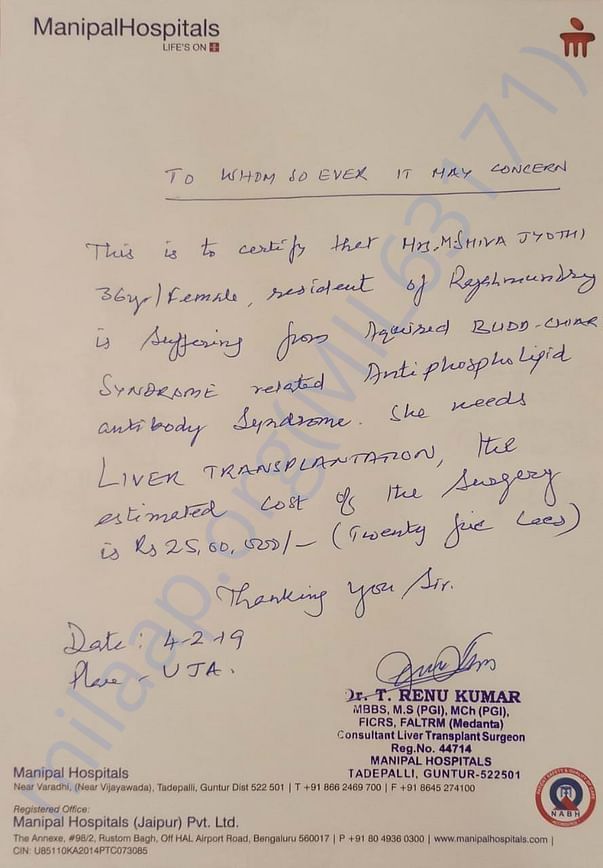 ManipalHospitals
LIFE'S ON
TO WHOM SO EVER IT MAY CONCERN
This is to certify that MRS. M SHIVA JYOTHI
36yr/Female, resident of Rajahmundry
is suffering from Aquired BUDD-CHIARI
SYNDROME related Antiphospholipid
antibody Syndrome. She needs
LIVER TRANSPLANTATION, the
estimated cost of the surgery
is Rs 25,00,000/- (Twenty five Lacs)
Thanking you Sir.
Date: 4-2-19
Place - VJA.
Dr. T. RENU KUMAR
MBBS, M.S (PGI), MCh (PGI),
FICRS, FALTRM (Medanta)
Consultant Liver Transplant Surgeon
Reg.No. 44714
MANIPAL HOSPITALS
TADEPALLI, GUNTUR-522501
Manipal Hospitals
Near Varadhi, (Near Vijayawada), Tadepalli, Guntur Dist 522 501 | T +91 866 2469 700 | F +91 8645 274100
Registered Office:
Manipal Hospitals (Jaipur) Pvt. Ltd.
The Annexe, #98/2, Rustom Bagh, Off HAL Airport Road, Bengaluru 560017 | P +91 80 4936 0300 | www.manipalhospitals.com |
CIN: U85110KA2014PTC073085
NABH
milaap.org(MIL63171)